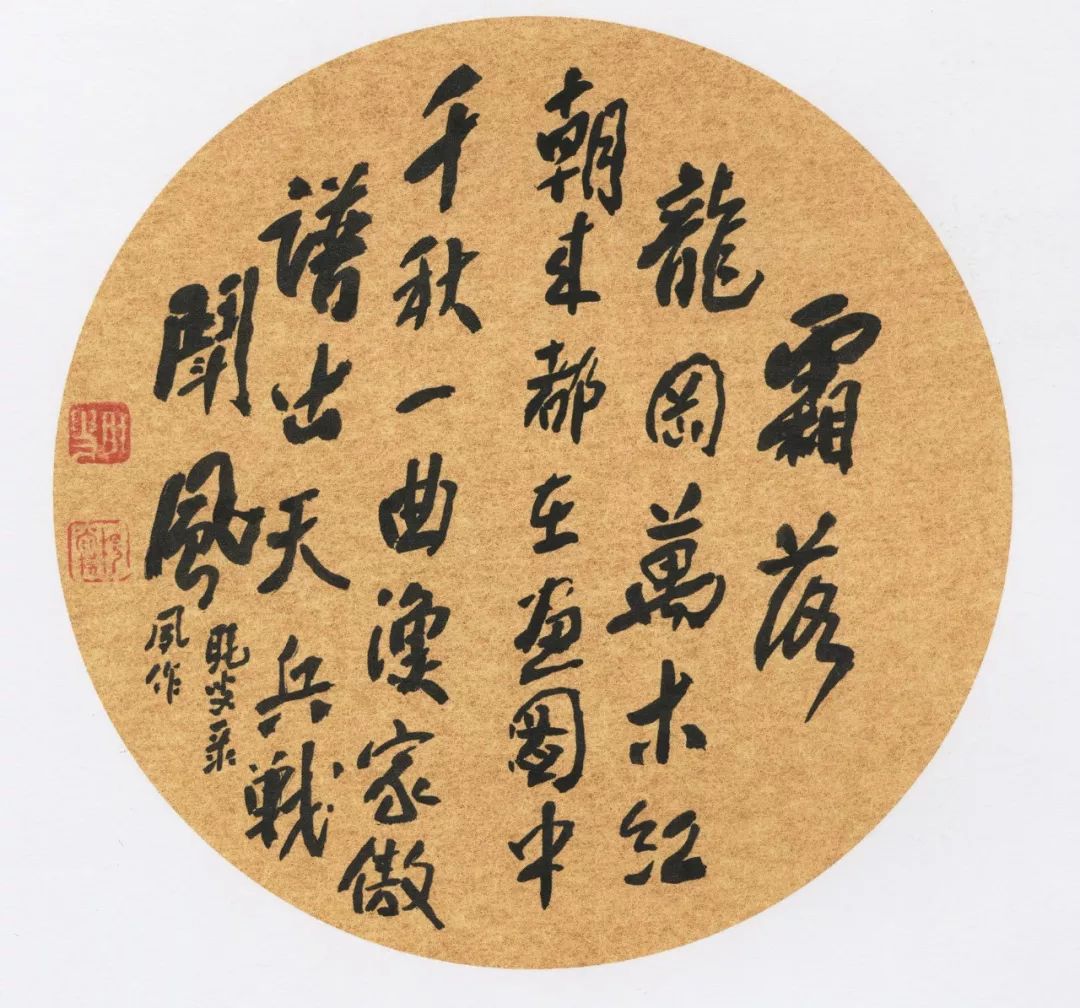 霜落
龍岡萬木紅
朝来都在畫圖中
千秋一曲漁家傲
譜出天兵戰
鬥風
录
作